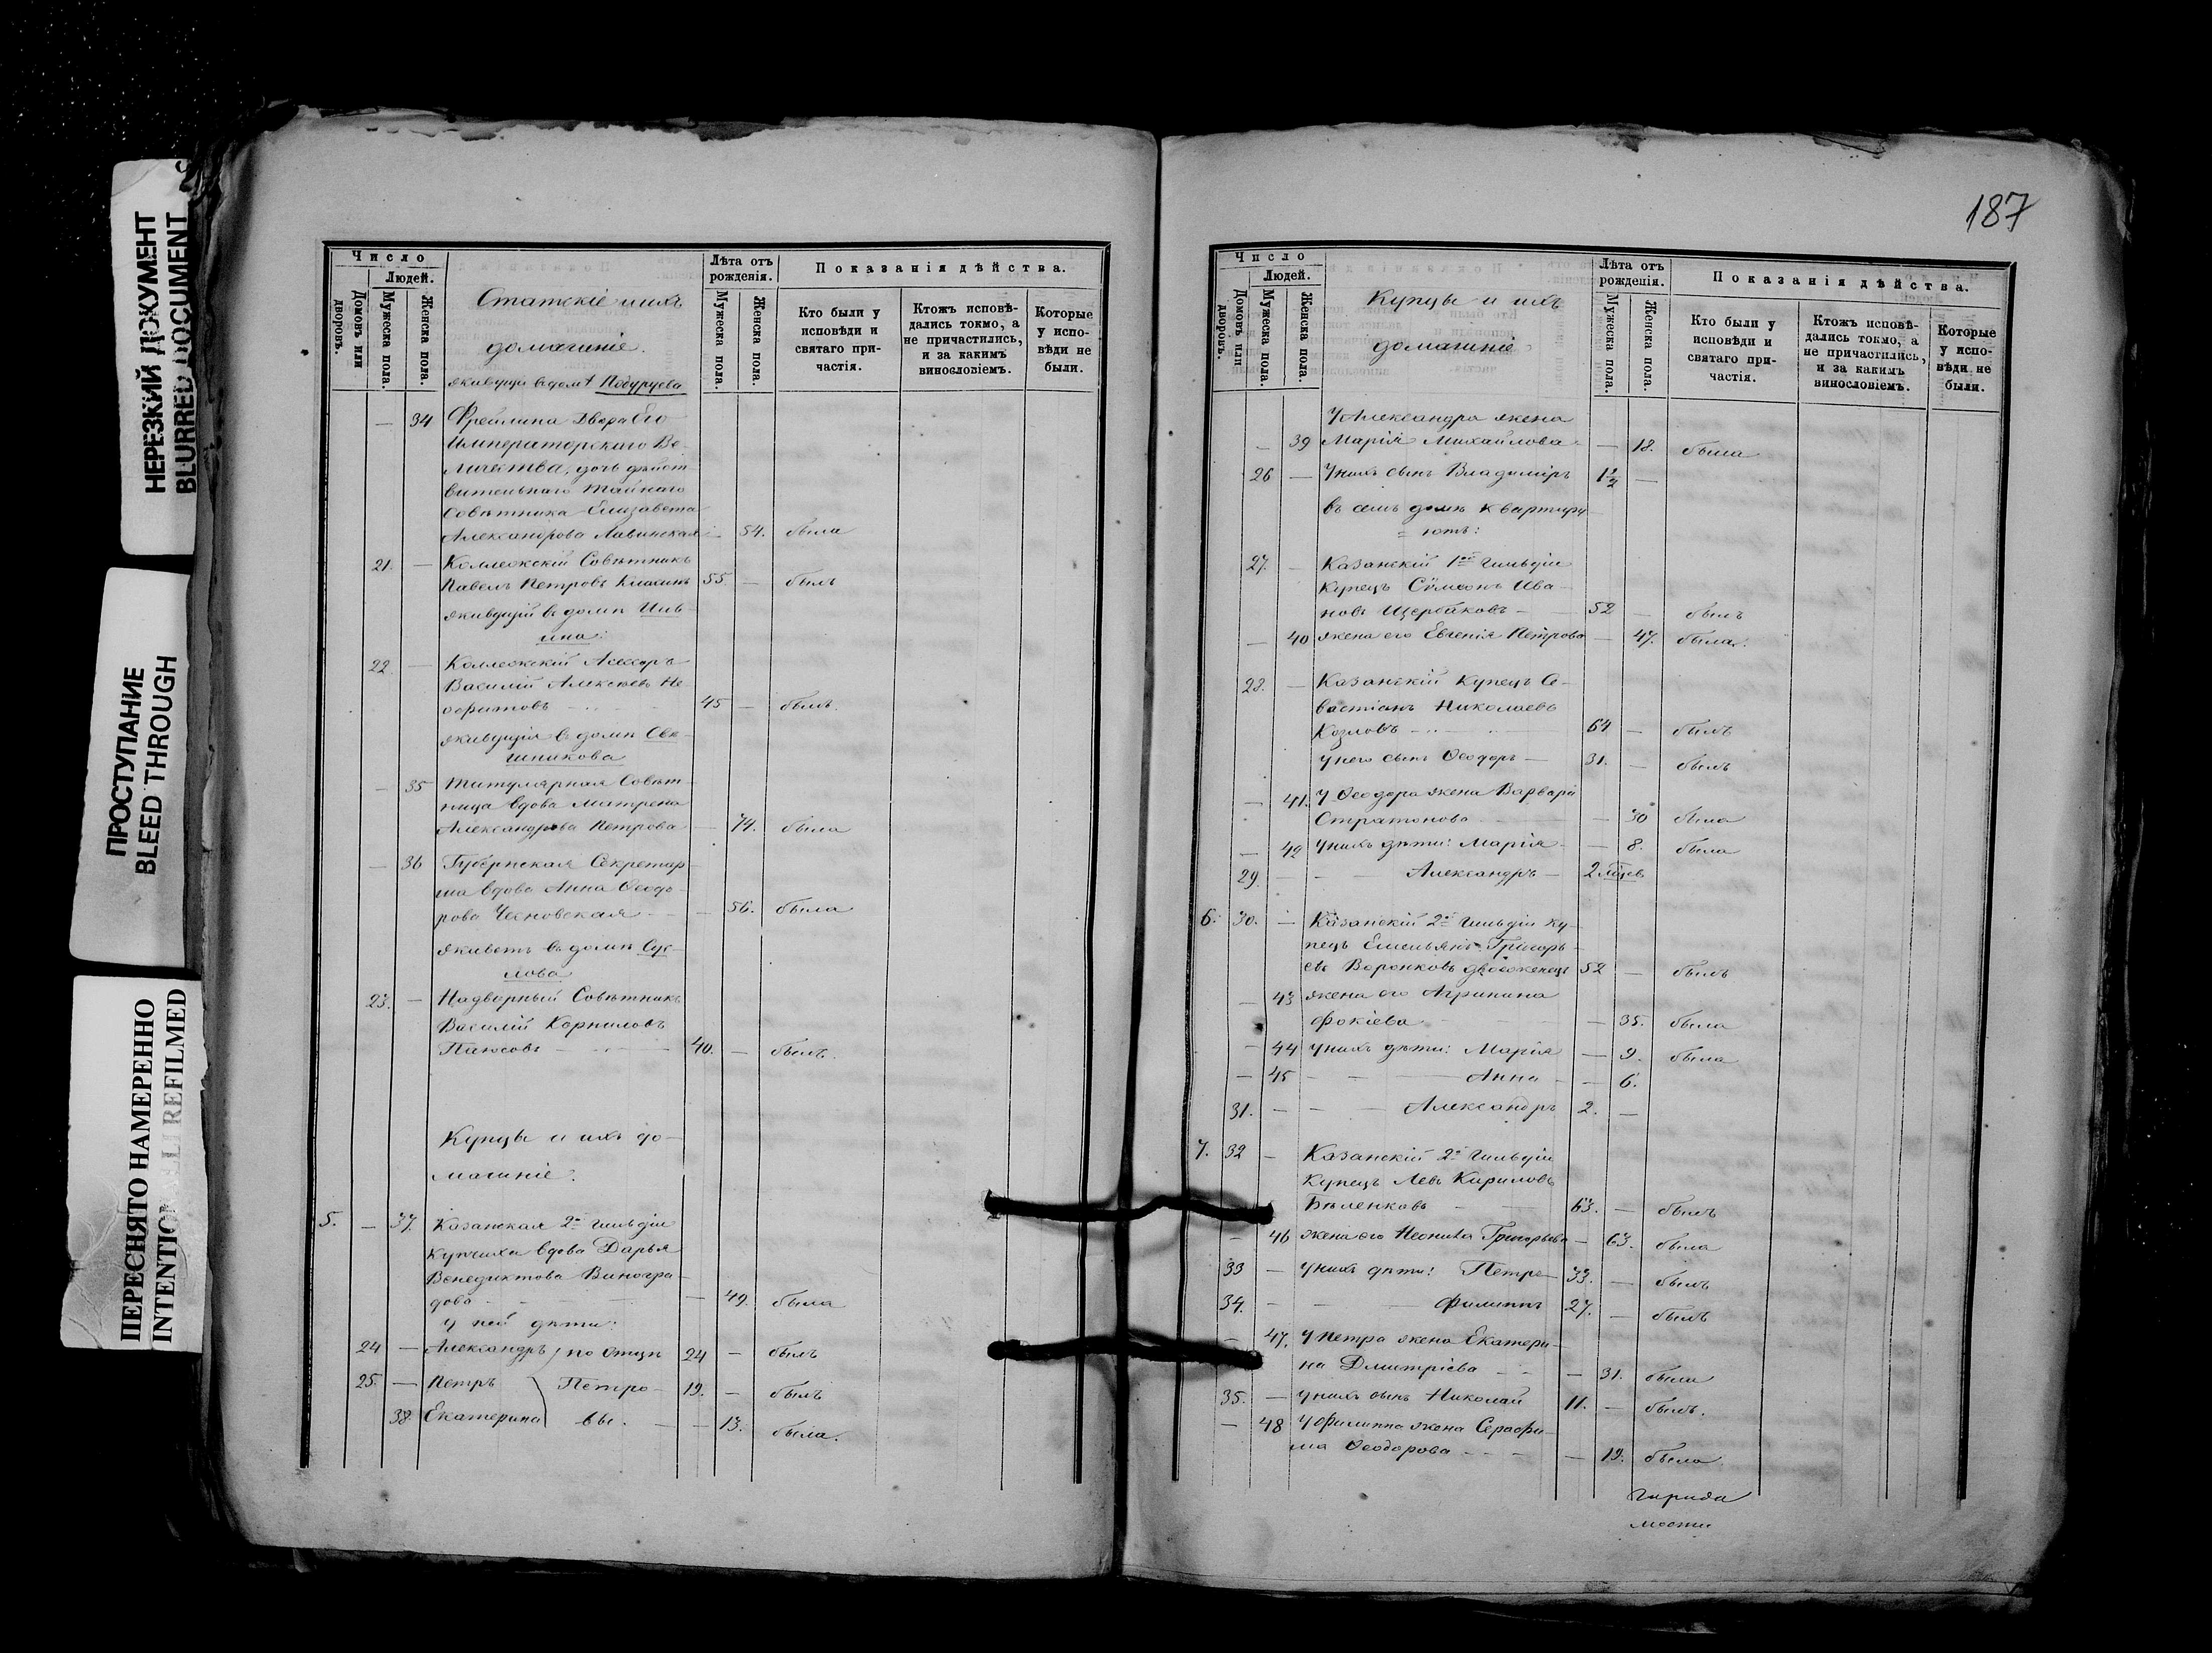 НЕРЕЗКИЙ ДОКУМЕНТ
BLURRED DOCUMENT
ПРОСТУПАНИЕ
BLEED THROUGH
ПЕРЕСНЯТО НАМЕРЕННО
INTENTIONALLY REFILMED
Число
Людей.
Домовъ или дворовъ.
Мужеска пола.
Женска пола.
Статскіе и ихъ
домашніе.
Лѣта отъ рожденія.
Мужеска пола.
Женска пола.
Показанія дѣйства.
Кто были у исповѣди и святаго причастія.
Ктожъ исповѣдались токмо, а не причастились, и за какимъ винословіемъ.
Которые у исповѣди не были.
живущи въ домѣ
— 34 Фрейлина Двора Его
Императорскаго Ве-
личества, дочь дѣйст
вительнаго тайнаго
Совѣтника Елизавета
Александрова Лавинская — 54. была
21. — Коллежскій Совѣтникъ
Павелъ Петровъ 55. — былъ
живущій въ домѣ Иль-
ина:
22 — Коллежскій Асессоръ
Василій Алексѣевъ Не-
офитовъ 45 — былъ.
живущія въ домѣ Све-
шникова
— 35 Титулярная Совѣт-
ница вдова Матрена
Александрова Петрова — 74. была
— 36 Губернская Секретар-
ша вдова Анна Ѳеодо-
рова Чесновская — 56. была
живетъ въ домѣ Сус-
лова
23. — Надворный Совѣтникъ
Василій Корниловъ
40. — былъ.
Купцы и ихъ до-
машніе.
5. — 37. Казанская 2й гильдіи
купчиха вдова Дарья
Венедиктова Виногра-
дова — 49. была
у ней дѣти:
24 — Александръ по отцѣ 24 — былъ
25. — Петръ Петро- 19. — былъ
38 Екатерина вы. — 13. была.
187
Число
Людей.
Домовъ или дворовъ.
Мужеска пола.
Женска пола.
Купцы и ихъ
домашніе
Лѣта отъ рожденія.
Мужеска пола.
Женска пола.
Показанія дѣйства.
Кто были у исповѣди и святаго причастія.
Ктожъ исповѣдались токмо, а не причастились, и за какимъ винословіемъ.
Которые у исповѣди не были.
У Александра жена
— 39 Марія Михайлова — 18. была
26 — У нихъ сынъ Владиміръ 1½ —
въ семъ домѣ квартиру-
ютъ:
27. — Казанскій 1ой гильдіи
купецъ Сѵмеонъ Ива-
новъ Щербаковъ 52 — былъ
— 40 жена его Евгенія Петрова — 47. была.
28. — Казанскій купецъ Се-
вастіанъ Николаевъ
Козловъ 64 — былъ
у него сынъ Ѳеодоръ 31. — былъ
— 41. У Ѳеодора жена Варвара
Стратонова — 30 была
— 42 У нихъ дѣти: Марія — 8. была
29. — Александръ 2 мѣсяц.
6. 30. — Казанскій 2й гильдіи ку-
пецъ Емельянъ Григорь-
евъ Воронковъ двоеженецъ 52 — былъ
— 43 жена его Агрипина
Фокіева — 35. была
— 44 у нихъ дѣти: Марія — 9. была
— 45 Анна — 6.
31. — Александръ 2. —
7. 32 — Казанскій 2й гильдіи
купецъ Левъ Кириловъ
Бѣленковъ 63. — былъ
— 46 жена его Неонила Григорьева — 63. была
33 — у нихъ дѣти: Петръ 33. — былъ
34. — Филиппъ 27. — былъ
— 47. У Петра жена Екатери-
на Дмитріева — 31. была
35. — у нихъ сынъ Николай 11. — былъ.
— 48 У Филиппа жена Серафи-
ма Ѳеодорова — 19. была